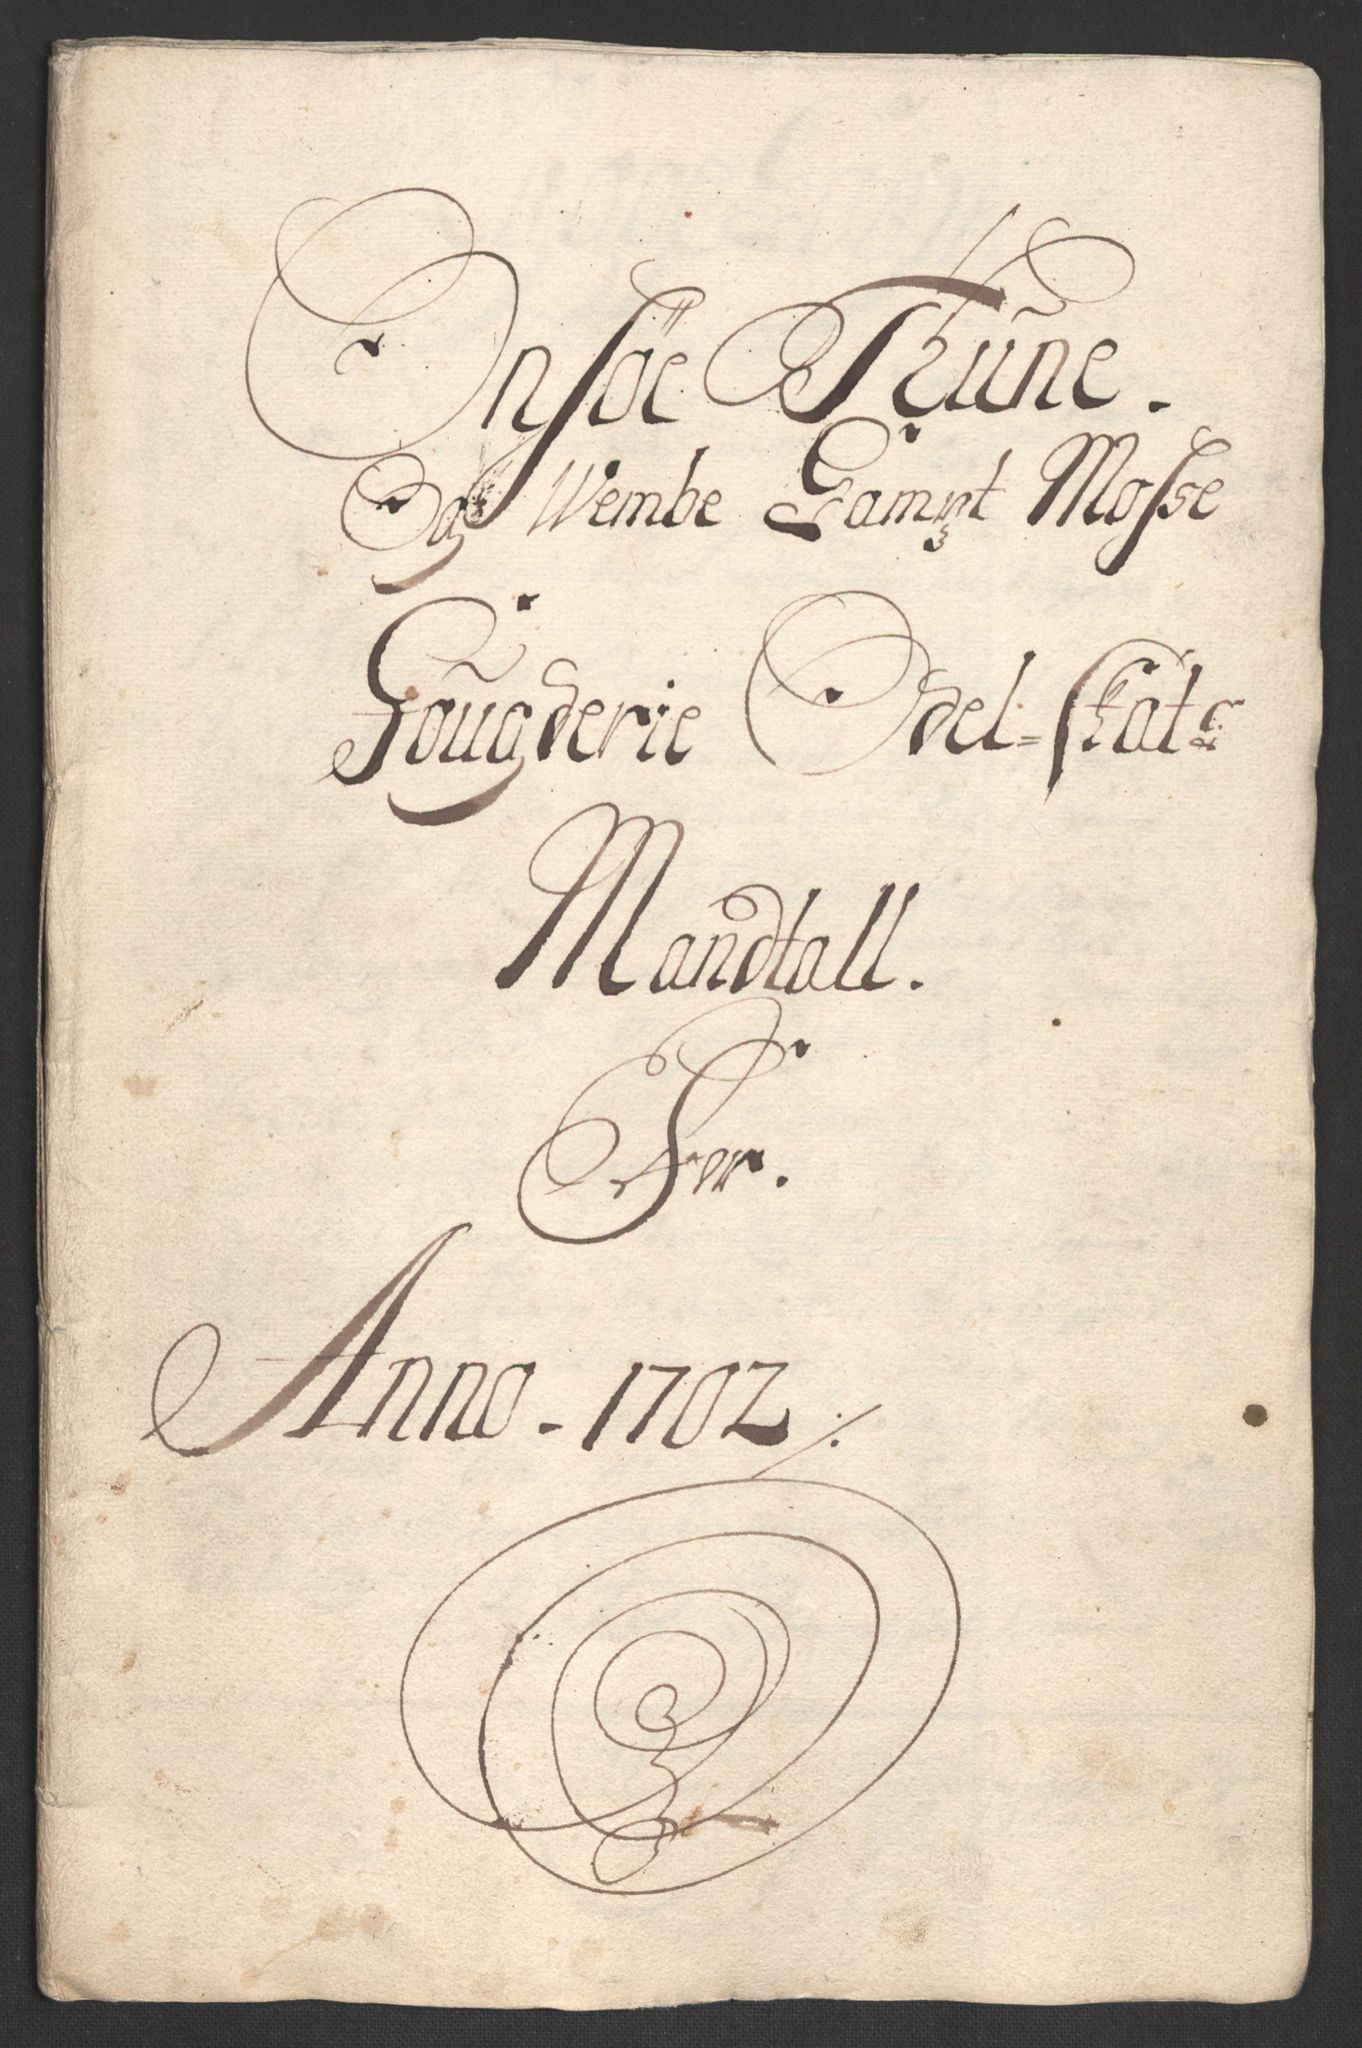 Onsöe Thune.
Og Wembe Sampt Mosse
Fougderie Odel=skats
Mandtall.
For.
Anno - 1702 ⁒